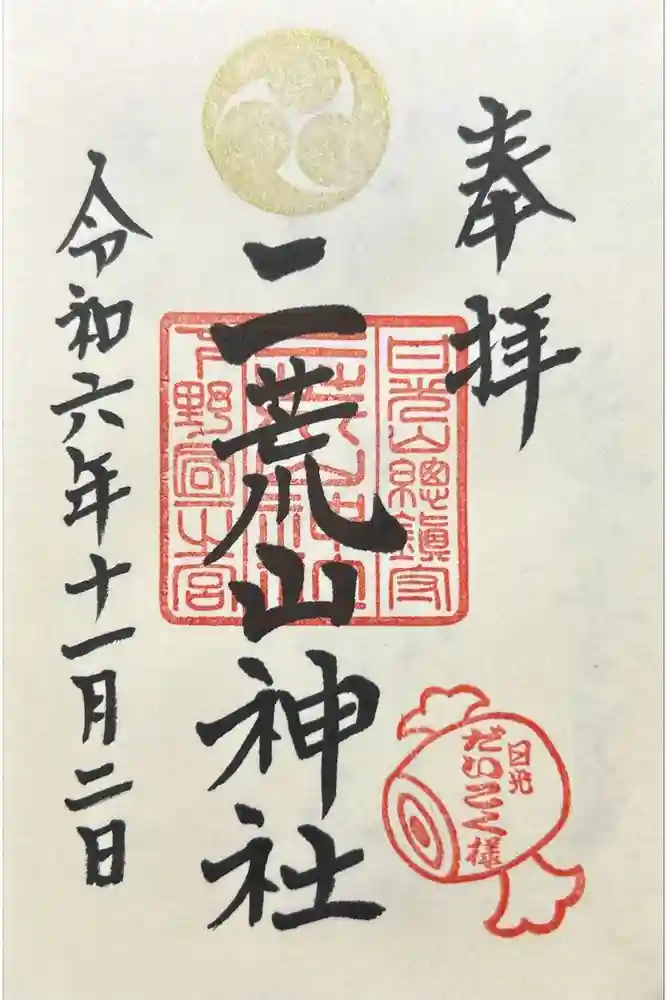 奉拝
日光山總鎮守
二荒山神社
二荒山神社
下野国一之宮
令和六年十一月二日
日光
だいこく様